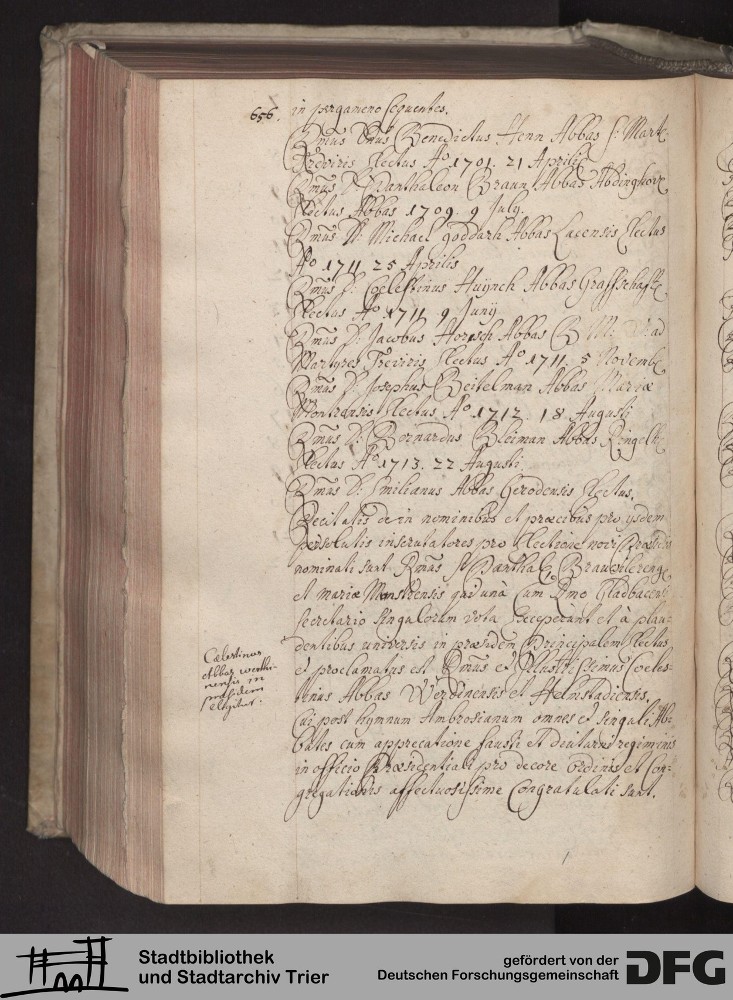 656. in pergameno sequentes.
Rmus Dnus Benedictus Henn Abbas S: Mart:
Treviris Electus Ao 1701. 21 Aprilis
Rmus D: Panthaleon Braun Abbas Abdinghove
Electus Abbas 1709. 9 July.
Rmus D: Michael goddarh Abbas Lacensis Electus
Ao 1711 25 Aprilis
Rmus D: Coelestinus Huÿnch Abbas Graffschafte
Electus Ao 1711 9 Junÿ
Rmus D: Jacobus Horsch Abbas B M: V ad
Martyres Treviris Electus Ao 1711. 5 Novemb:
Rmus D: Josephus Beitelman Abbas Mariæ
Montensis Electus Ao 1712. 18 Augusti
Rmus D: Bernardus Bleiman Abbas Ringelh:
Electus Ao 1713. 22 Augusti.
Rmus D: Emilianus Abbas Gerodensis Electus.
Recitatis dein nominibus et præcibus pro ÿsdem
persolutis inscrutatores pro Electione novi Præsidis
nominati sunt Rmus D Panthal: Brauwilereng:
et mariæ Monstrensis qui unà cum Rmo Gladbacensi
secretario singulorum vota Exceperunt et à plau-
dentibus universis in præsidem Principalem Electus
et proclamatus est Rmus et Illustrissimus Coeles-
tinus Abbas Werdinensis et Helmstadiensis,
Cui post hymnum Ambrosianum omnes et singuli Ab-
bates cum apprecatione fausti et diuturni regiminis
in officio Præsidentiali pro decore ordinis et Con-
gregationis affectuosissime Congratulati sunt.
Cælestinus
Abbas werthi-
nensis in
præsidem
eligitur.
Stadtbibliothek
und Stadtarchiv Trier
gefördert von der
Deutschen Forschungsgemeinschaft
DFG